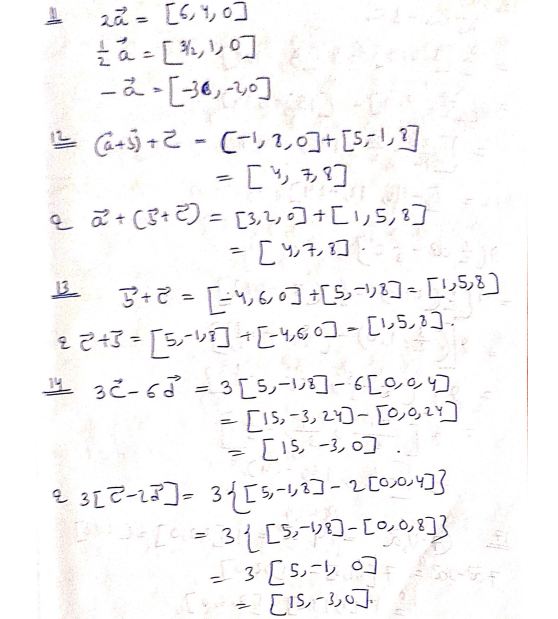 11 2a⃗ = [6, 4, 0]
½ a⃗ = [3/2, 1, 0]
− a⃗ = [−3, −2, 0]
12 (a⃗+b⃗)+c⃗ = [−1, 8, 0]+[5, −1, 8]
= [4, 7, 8]
& a⃗+(b⃗+c⃗) = [3, 2, 0]+[1, 5, 8]
= [4, 7, 8].
13 b⃗+c⃗ = [−4, 6, 0]+[5, −1, 8] = [1, 5, 8]
& c⃗+b⃗ = [5, −1, 8]+[−4, 6, 0] = [1, 5, 8].
14 3c⃗−6d⃗ = 3[5, −1, 8]−6[0, 0, 4]
= [15, −3, 24]−[0, 0, 24]
= [15, −3, 0].
& 3[c⃗−2d⃗] = 3{[5, −1, 8]−2[0, 0, 4]}
= 3{[5, −1, 8]−[0, 0, 8]}
= 3[5, −1, 0]
= [15, −3, 0].